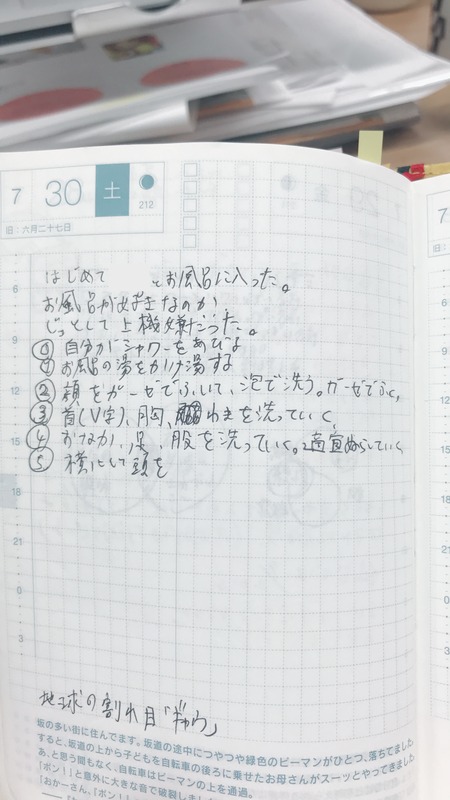 7 30 土 212
旧:六月二十七日
はじめて とお風呂に入った。
お風呂が好きなのか
じっとして上機嫌だった。
⓪ 自分がシャワーをあびる
① お風呂の湯をかけ湯する
② 顔をガーゼでふいて、泡で洗う。ガーゼでふく。
③ 首(V字)、胸、わきを洗っていく
④ おなか、足、股を洗っていく。適宜ぬらしていく
⑤ 横にして頭を
6
9
12
15
18
21
3
地球の割れ目「ギャウ」
坂の多い街に住んでます。坂道の途中につやつや緑色のピーマンがひとつ、落ちてました。
すると、坂道の上から子どもを自転車の後ろに乗せたお母さんがスーッとやってきました。
あ、と思う間もなく、自転車はピーマンの上を通過。
「ボン!」と意外に大きな音で破裂しました
「おかーさん、「ボン!